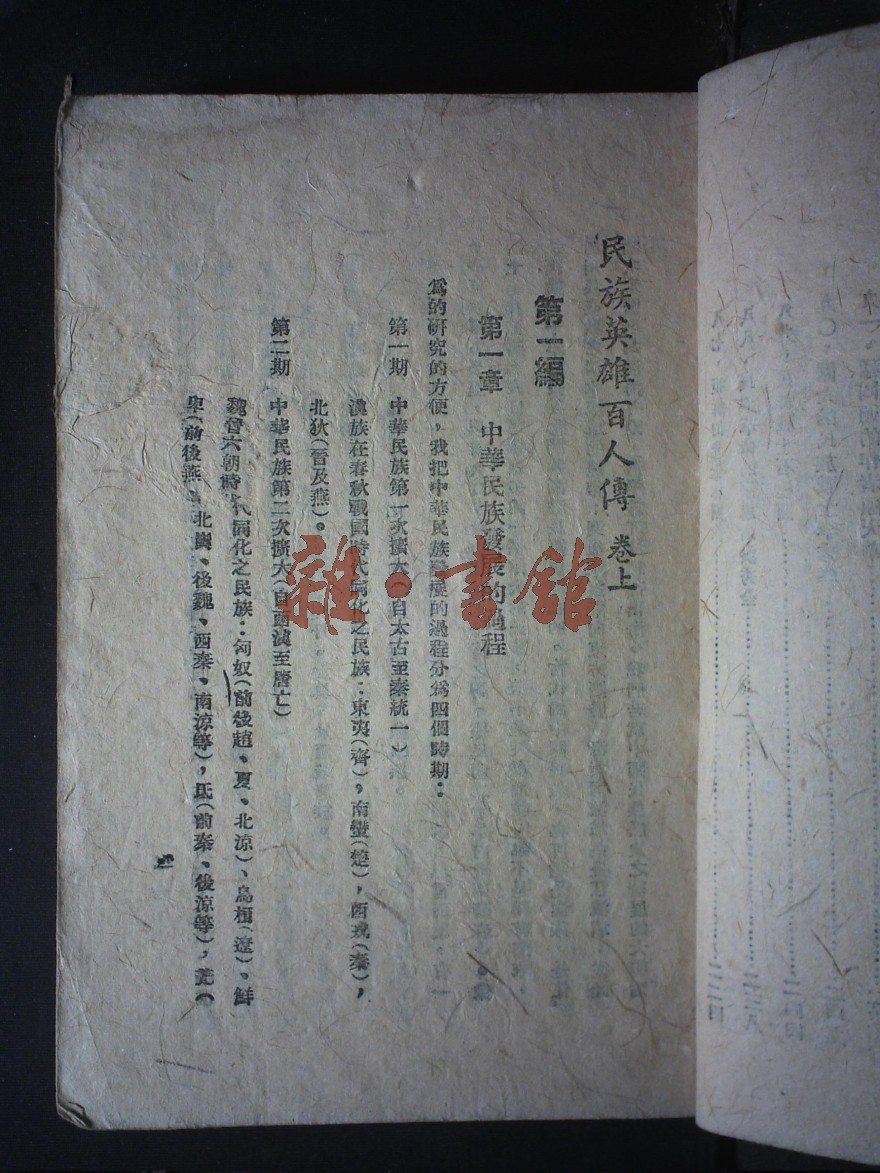 民族英雄百人傳 卷上
第一編
第一章 中華民族發展的過程
爲的研究的方便，我把中華民族發展的過程分爲四個時期：
第一期 中華民族第一次擴大（自太古至秦統一）
漢族在春秋戰國時代同化之民族：東夷（齊），南蠻（楚），西戎（秦），
北狄（晉及燕）。
第二期 中華民族第二次擴大（自兩漢至唐亡）
魏晉六朝時代同化之民族：匈奴（前後趙、夏、北涼）、烏桓（遼）、鮮
卑（前後燕、北、後魏、西秦、南涼等），氐（前秦、後涼等），羌（
雜·書館